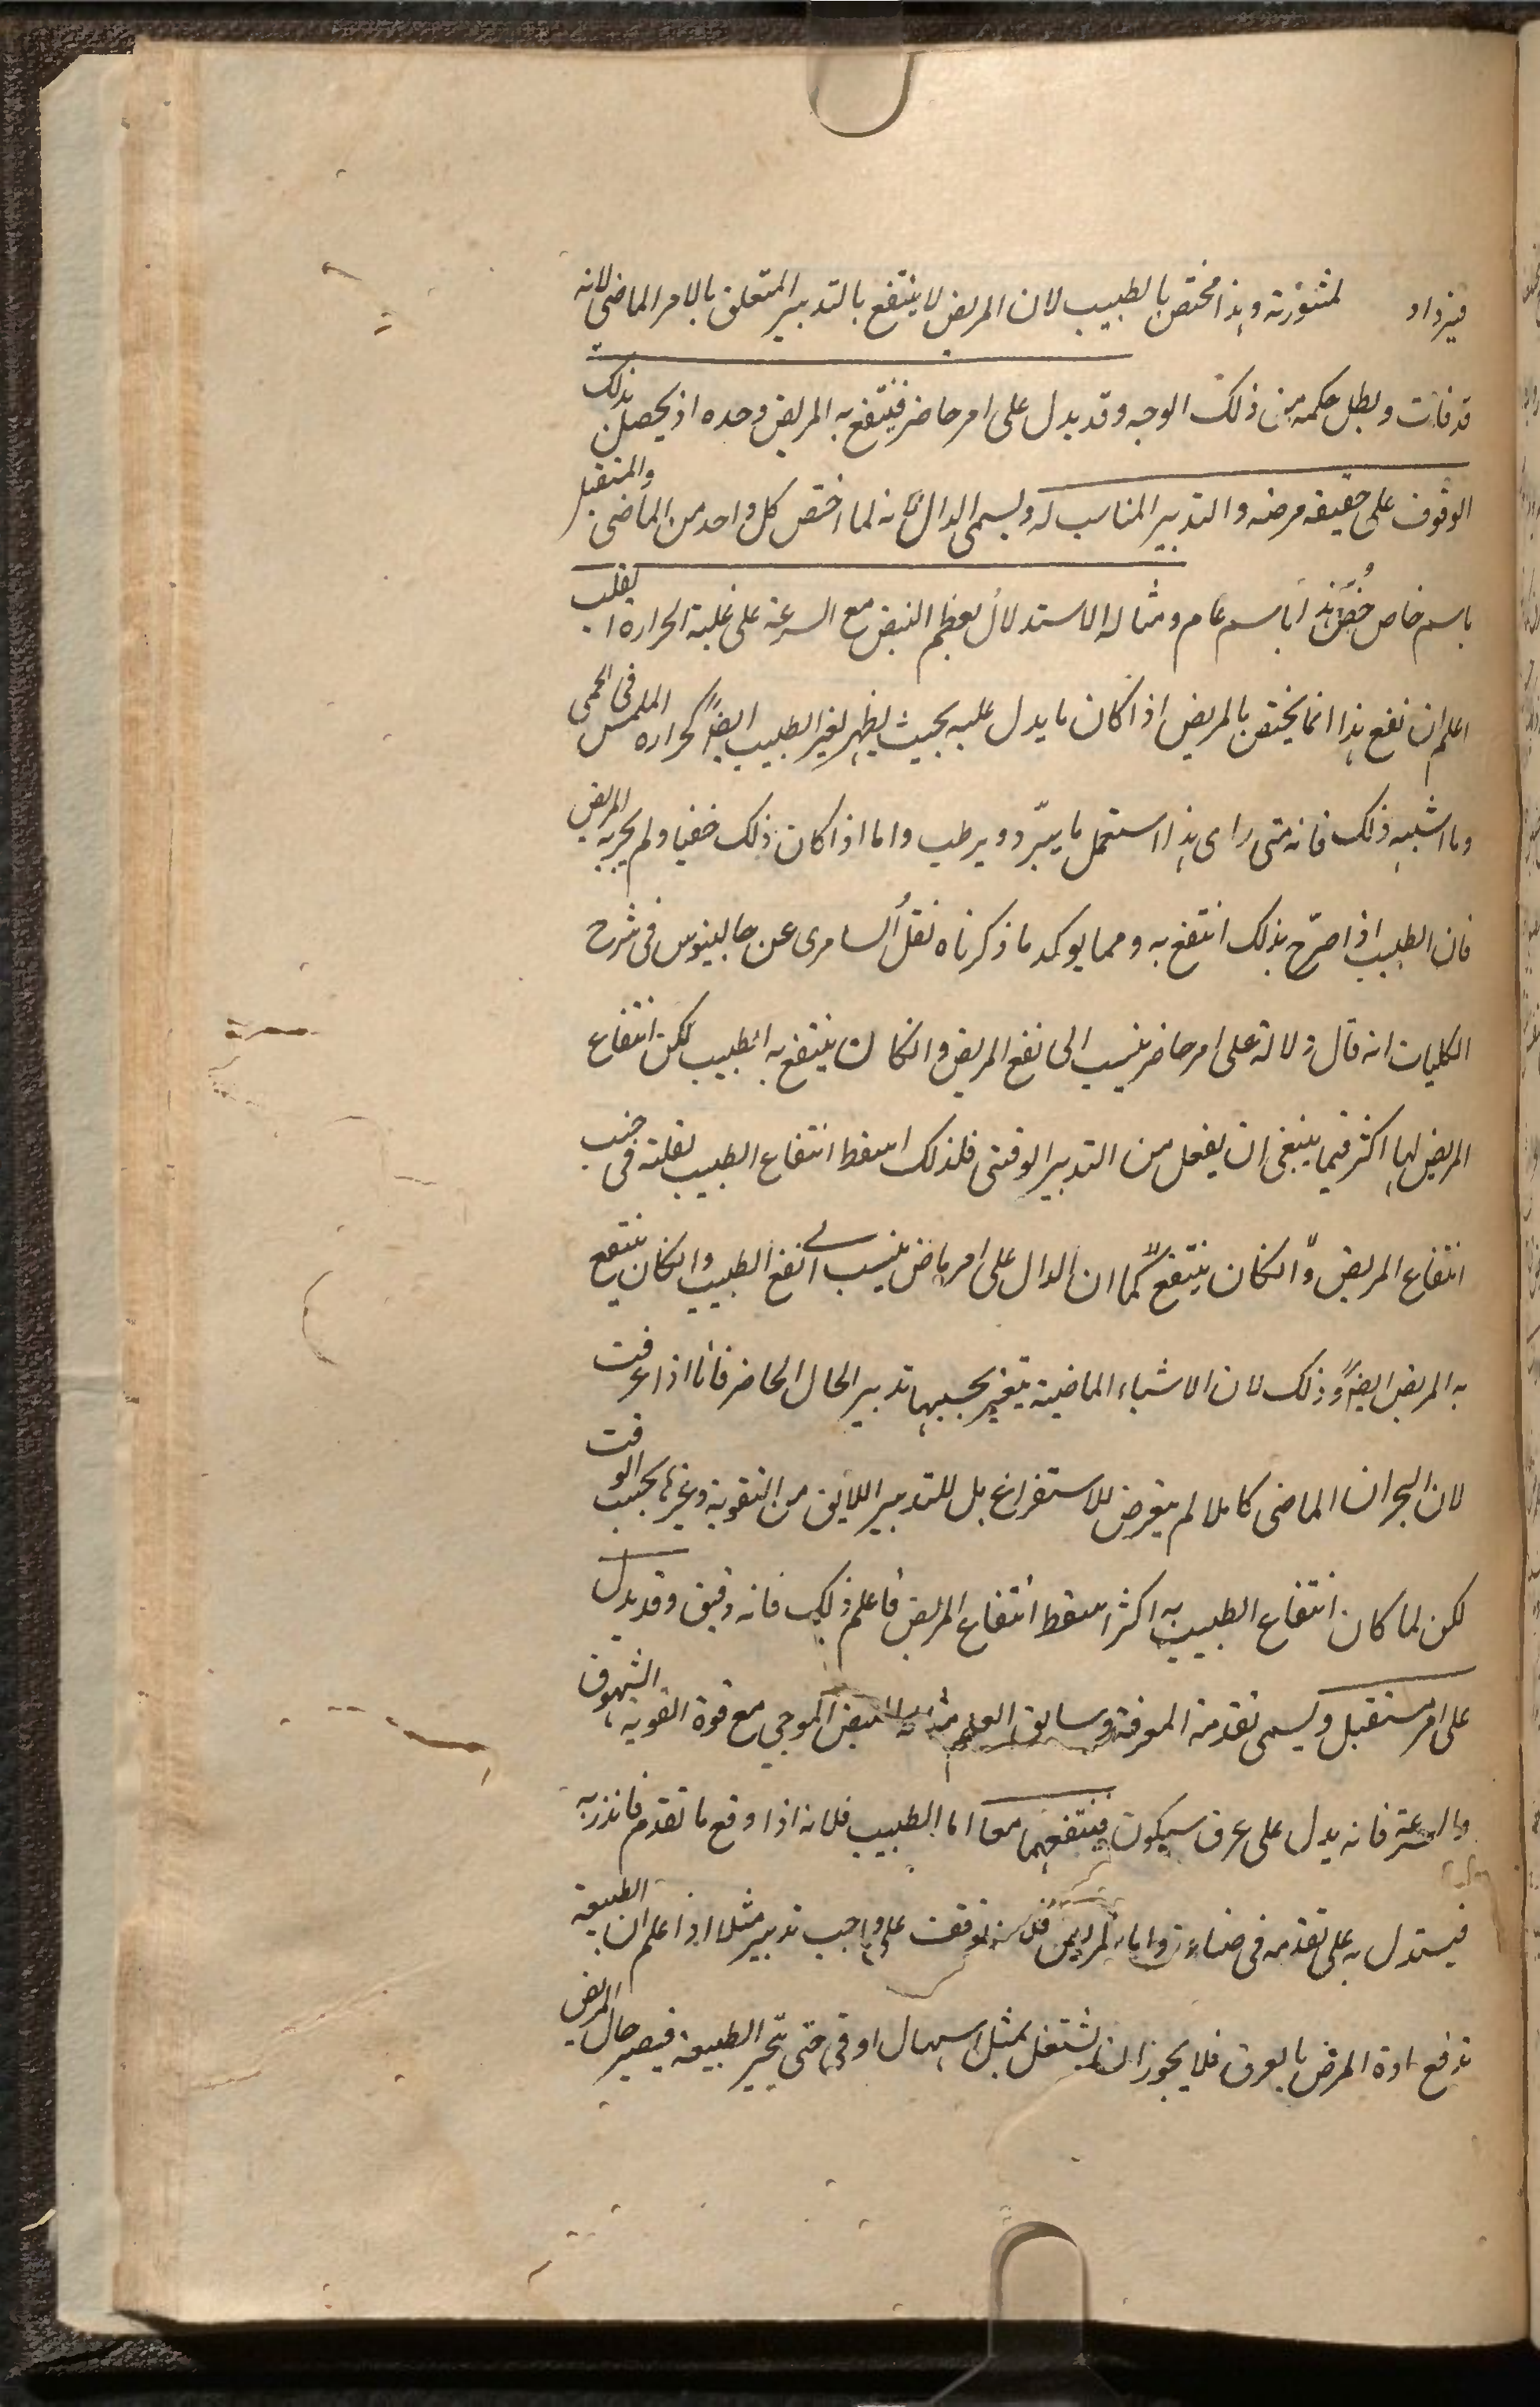 فيزداد لمشورته وهذا مختص بالطبيب لان المريض لا ينتفع بالتدبير المتعلق بالامر الماضى لانه
قد فات وبطل حكمه من ذلك الوجه وقد يدل على امر حاضر فينتفع به المريض وحده اذ يحصل بذلك
الوقوف على حقيقة مرضه والتدبير المناسب له ويسمى الدال فانه لما اختص كل واحد من الماضى والمستقبل
باسم خاص خُصّ هذا باسم عام ومثاله الاستدلال بعظم النبض مع السرعة على غلبة الحرارة
اعلم ان نفع هذا انما يختص بالمريض اذا كان ما يدل عليه بحيث يظهر لغير الطبيب ايضاً كحراره الملمس فى الحمى
وما اشبه ذلك فانه متى راى هذا استعمل ما يبّرد ويرطب واما اذا كان ذلك خفيا ولم يجربه المريض
فان الطبيب اذا صرّح بذلك انتفع به ومما يوكد ما ذكرناه نقل السامرى عن جالينوس فى شرح
الكليات انه قال دلالة على امر حاضر ينسب الى نفع المريض وانكان ينتفع به الطبيب لكن انتفاع
المريض بها اكثر فيما ينبغى ان يفعل من التدبير الوقتى فلذلك اسقط انتفاع الطبيب لقلته فى جنب
انتفاع المريض وانكان ينتفع كما ان الدال على امر ماض ينسب الى نفع الطبيب وانكان ينتفع
به المريض ايضاً وذلك لان الاشياء الماضية يتغير بحسبها تدبير الحال الحاضر فانا اذا عرفت
لان البحران الماضى كاملا لم يتعرض للاستفراغ بل للتدبير اللايق من التقوية وغيرها بحسب الوقت
لكن لما كان انتفاع الطبيب به اكثر اسقط انتفاع المريض فاعلم ذلك فانه دقيق وقد يدل
على امر مستقبل ويسمى تقدمة المعرفة وسابق العلم مثاله النبض الموجي مع قوة القوية الشهوق
والسرعة فانه يدل على عرق سيكون فينتفع بهما معا اما الطبيب فلانه اذا وقع ما تقدم فانذر به
فيستدل به على تقدمه فى صناعته واما المريض فلانه توقفت على واجب تدبير مثلا اذا علم ان الطبيعة
تدفع مادة المرض بالعرق فلا يجوز ان يشتغل بمثل اسهال او قى حتى تتحير الطبيعة فيصير حال المريض